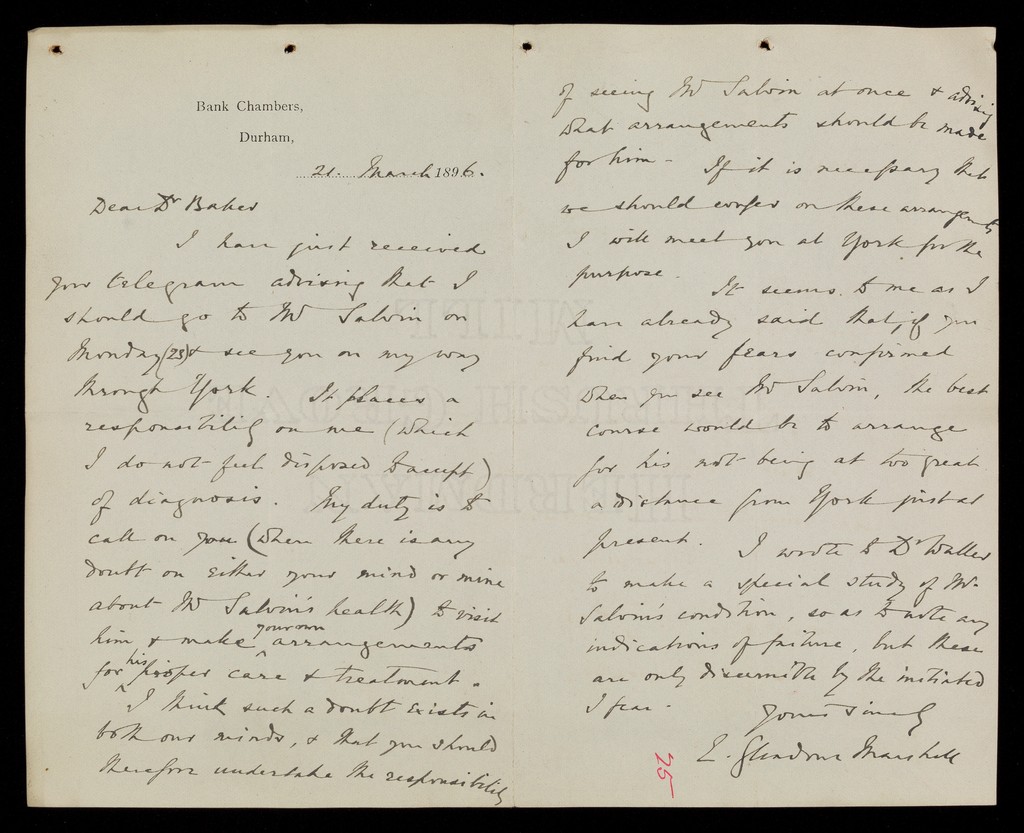 Bank Chambers,
Durham,
21. March 1896.
Dear Dr Baker
I have just received
your telegram advising that I
should go to Mr Salvin on
Monday (23) & see you on my way
through York. It places a
responsibility on me (which
I do not feel disposed to accept)
of diagnosis. My duty is to
call on you (when there is any
doubt on either your mind or mine
about Mr Salvin's health) to visit
him & make your own arrangements
for his proper care & treatment.
I think such a doubt exists in
both our minds, & that you should
therefore undertake the responsibility
of seeing Mr Salvin at once & advising
what arrangements should be made
for him - If it is necessary that
we should confer on these arrangements
I will meet you at York for the
purpose.
It seems to me as I
have already said that, if you
find your fears confirmed
when you see Mr Salvin, the best
course would be to arrange
for his not being at too great
a distance from York just at
present. I wrote to Dr
to make a special study of Mr
Salvin's condition, so as to note any
indications of failure, but these
are only discernible by the initiated
I fear.
Yours sincely
E. Glendower Marshall
25